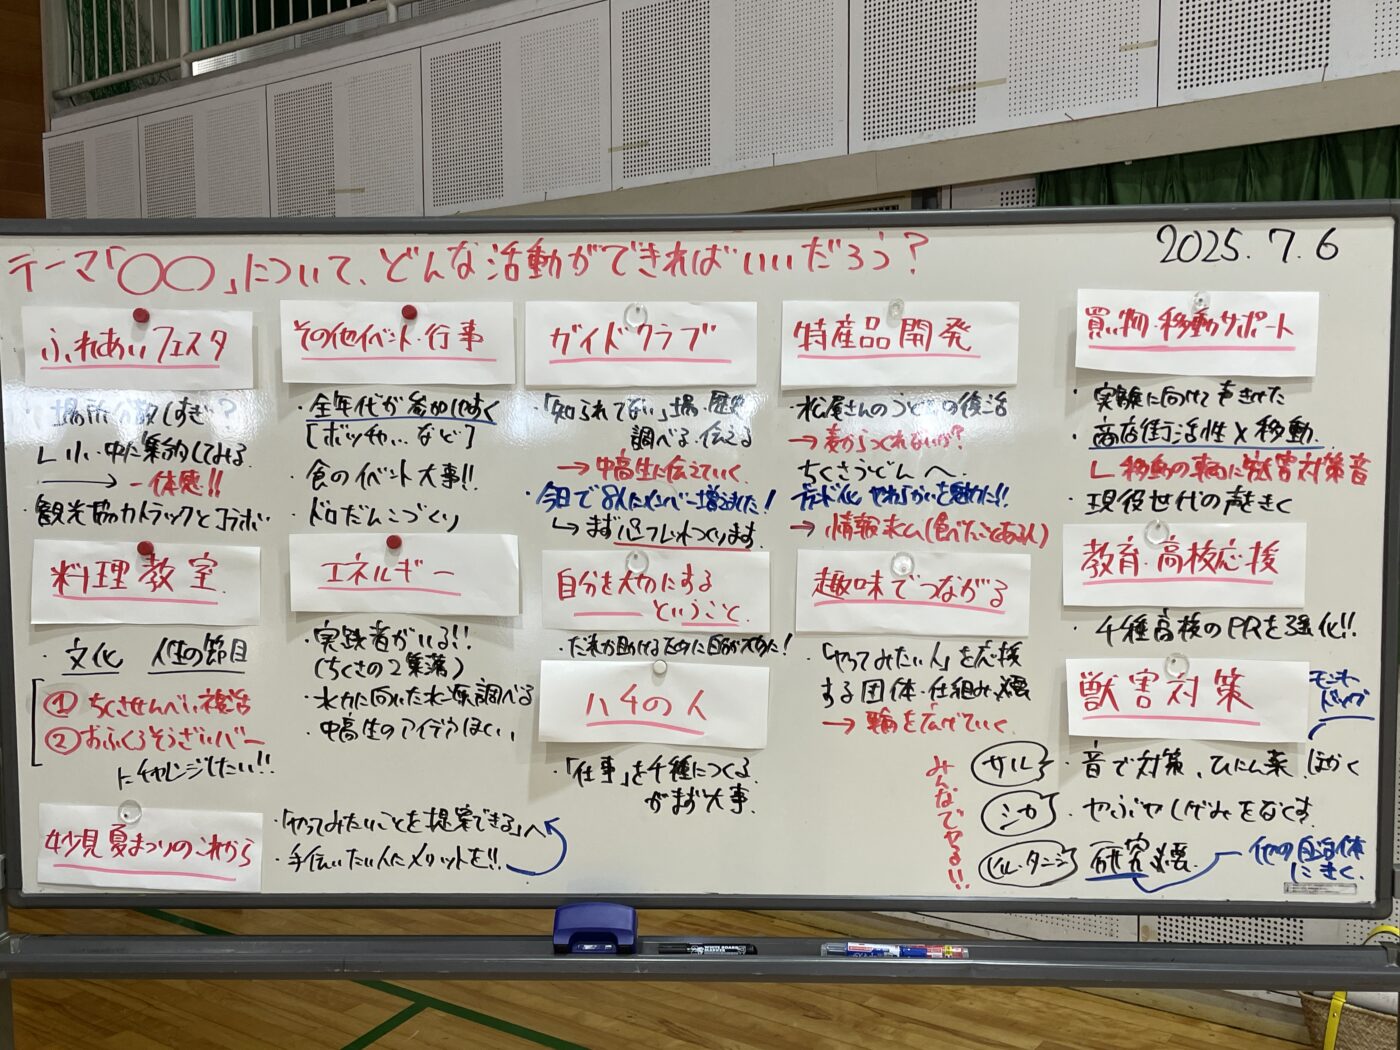 テーマ「〇〇」について、どんな活動ができればいいだろう?
2025.7.6
ふれあいフェスタ
・場所分散しすぎ?
小・中に集約してみる
→一体感!!
・観光協力トラックとコラボ
料理教室
・文化 人生の節目
① ちくさせんべい復活
② おふくろそうざいバー
にチャレンジしたい!!
妙見夏まつりのこれから
・「やってみたいことを提案できる」へ
・手伝いたい人にメリットを!!
その他イベント・行事
・全年代が参加しやすく
[ボッチャ…など]
・食のイベント大事!!
・ドロだんごづくり
エネルギー
・実践者がいる!!
(ちくさの2集落)
・水力に向いた水源調べる
・中高生のアイデアほしい
ガイドクラブ
・「知られてない」場・歴史
調べる・伝える
→中高生に伝えていく
・今日で8人にメンバー増えました!
↳まずパンフレットつくります
自分を大切にする
ということ
・だれか助けるために自分が大事!
ハチの人
・「仕事」を千種につくる
がまず大事
特産品開発
・松屋さんのうどんの復活
→麦からつくれないか?
ちくさうどんへ
ブランド化 やわらかいを魅力に!!
→情報求ム(食べたことある人)
趣味でつながる
・「やってみたい人」を応援
する団体・仕組み必要
→輪を広げていく
買い物・移動サポート
・実験に向けて声きけた
・商店街活性×移動
↳移動の車に獣害対策音
・現役世代の声きく
教育・高校応援
・千種高校のPRを強化!!
獣害対策
モンキードッグ
サル
・音で対策、ひにん薬、ほかく
シカ
・やぶやしげみをなくす
ヒル・ダニ
研究必要
他の自治体にきく
みんなでやる!!